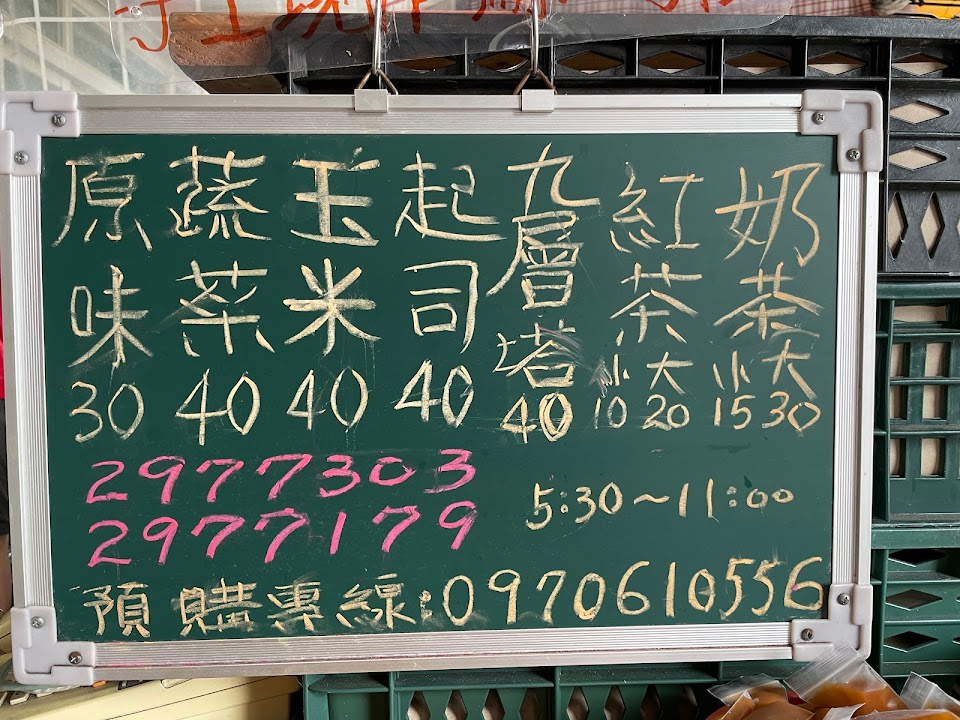 手工現
原味 30
蔬菜 40
玉米 40
起司 40
九層塔 40
紅茶 小10 大20
奶茶 小15 大30
2977303
2977179
5:30~11:00
預購專線:0970610556